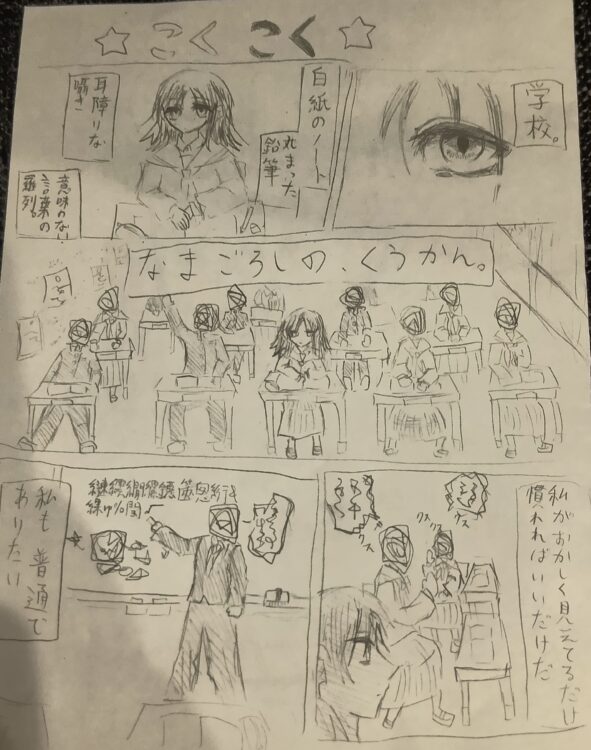 ☆ こく こく ☆
学校。
白紙のノート
丸まった
鉛筆
耳障りな
囁き
意味のない
言葉の
羅列。
なまごろしの、くうかん。
私がおかしく見えてるだけ
慣れればいいだけだ
クスクス
クスクス
私も 普通で
ありたい